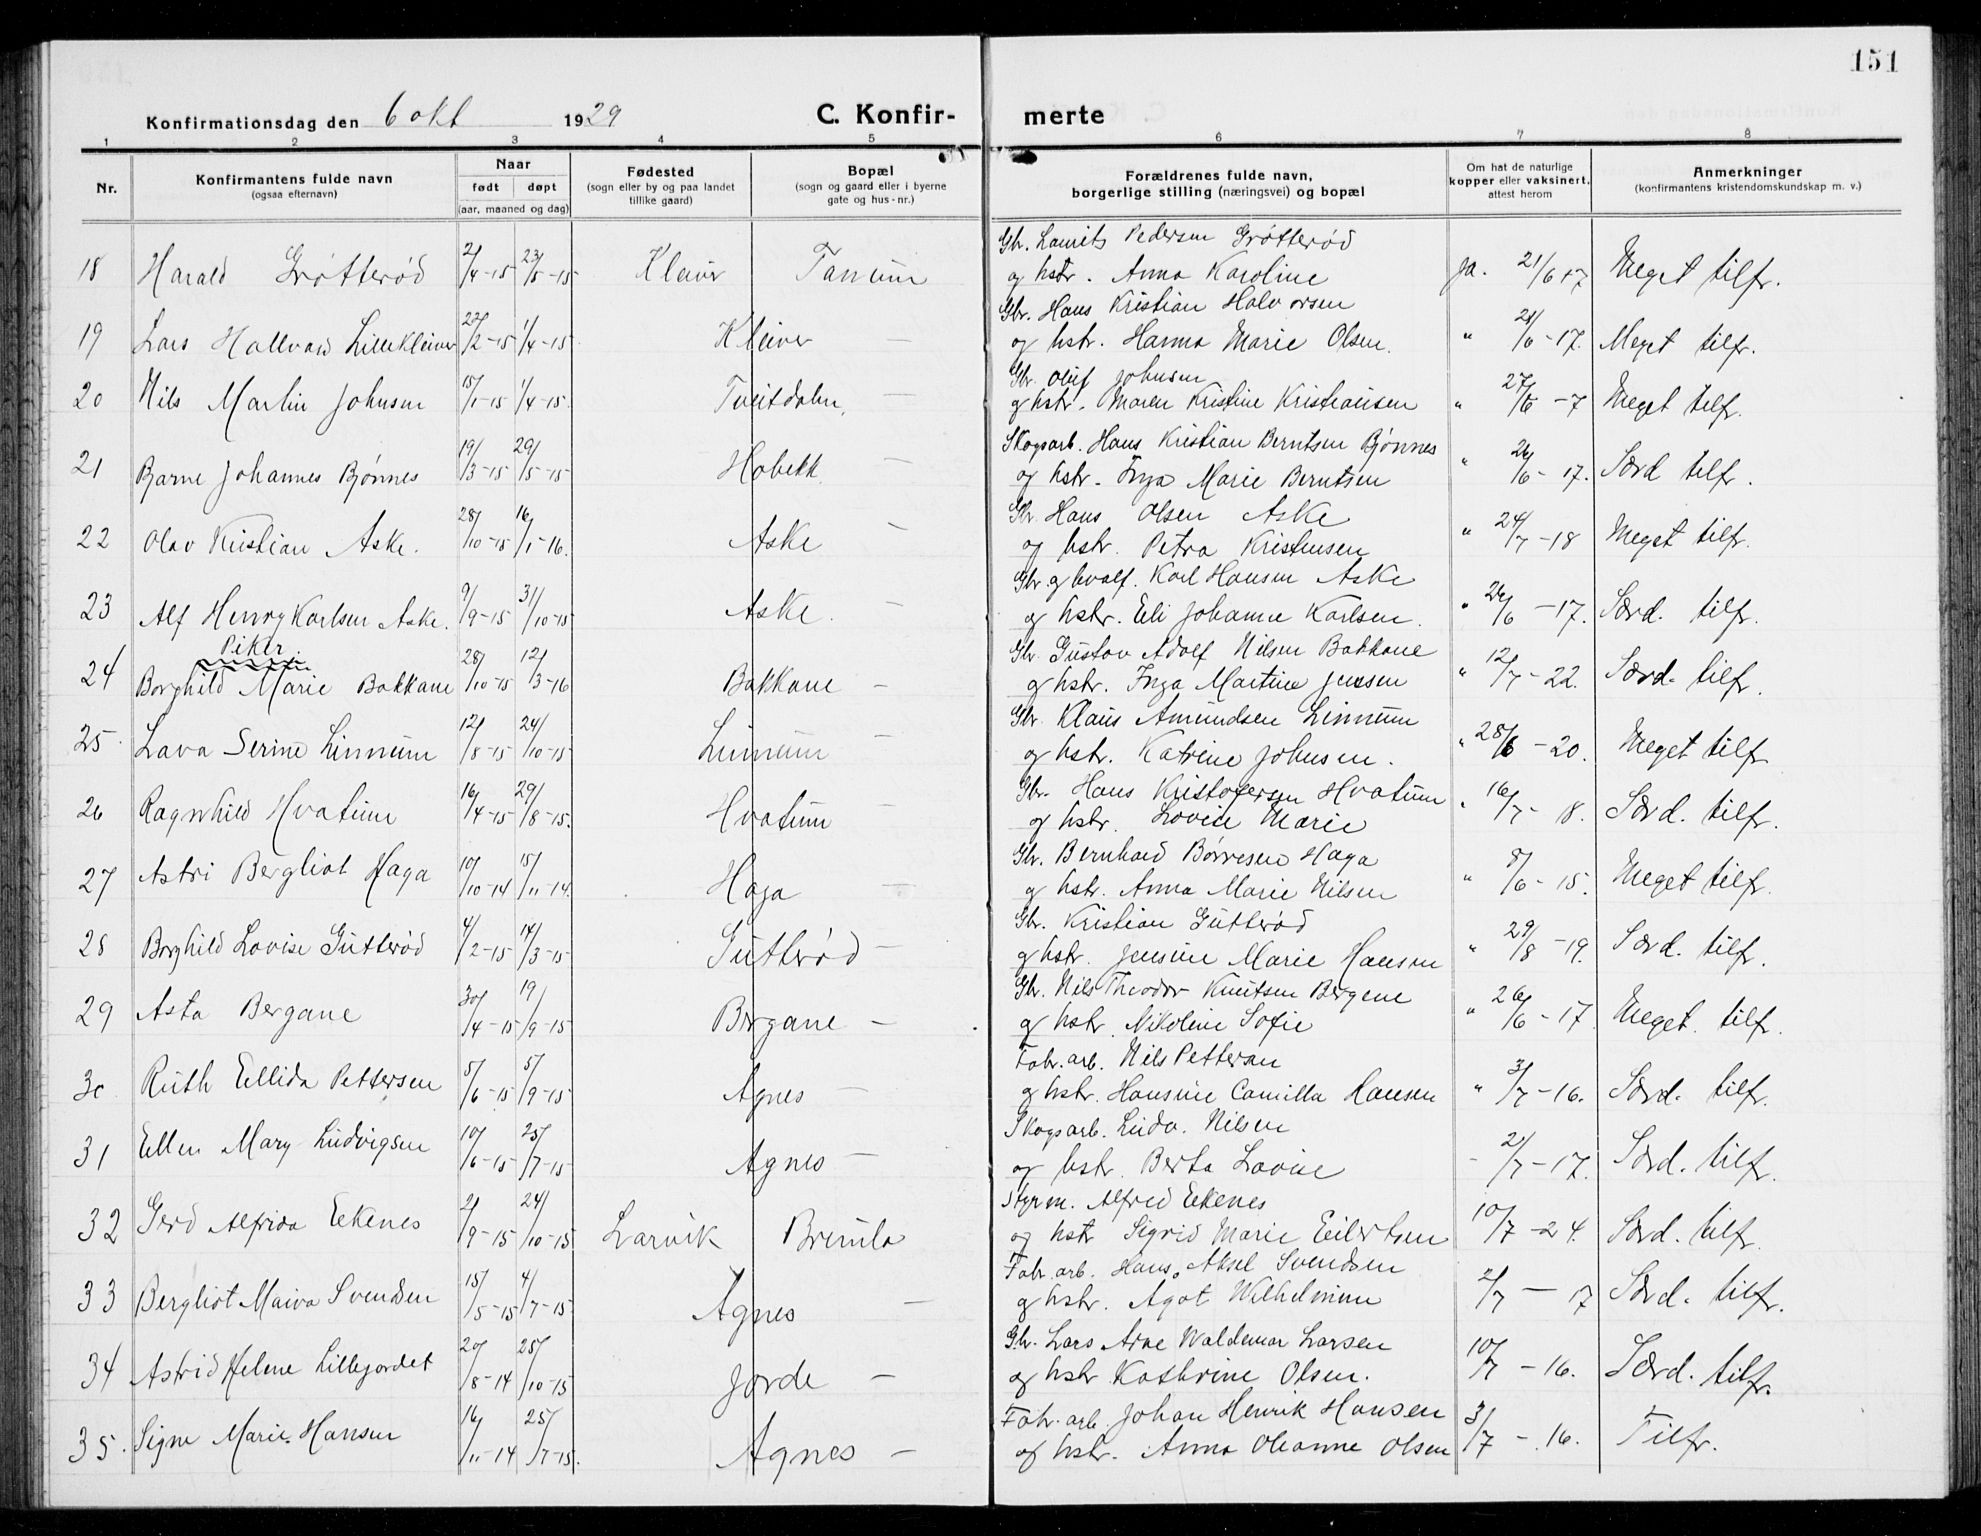 151
Konfirmationsdag den 6 okt 1929 C. Konfir- merte
1 2 3 4 5 6 7 8
Nr. Konfirmantens fulde navn (ogsaa efternavn) Naar født døpt (aar, maaned og dag) Fødested (sogn eller by og paa landet tillike gaard) Bopæl (sogn og gaard eller i byerne gate og hus-nr.) Forældrenes fulde navn, borgerlige stilling (næringsvei) og bopæl Om hat de naturlige kopper eller vaksinert, attest herom Anmerkninger (konfirmantens kristendomskundskap m. v.)
Gbr. Laurits Pedersen Grøtterød
18 Harald Grøtterød 2/4-15 23/5-15 Kleiver Tanum og hstr. Anna Karoline ja. 21/6 17 Meget tilfr.
Gbr. Hans Kristian Halvorsen
19 Lars Hallvard Lillekleiver 22/2-15 1/4-15 Kleiver — og hstr. Hanna Marie Olsen. " 21/6-17. Meget tilfr.
Gbr. Oluf Johnsen
20 Nils Martin Johnsen 15/1-15 1/4-15. Tveitdalen, — og hstr. Maren Kristine Kristiansen " 27/6-7 Meget tilfr.
Skogsarb. Hans Kristian Berntsen Bjønnes
21 Bjarne Johannes Bjønnes 19/3-15 29/5-15 Hobekk. — og hstr. Inga Marie Berntsen " 26/6-17. Særd tilfr.
Gbr. Hans Olsen Aske
22 Olav Kristian Aske. 28/10-15 16/1-16. Aske — og hstr. Petra Kristensen " 24/7-18 Meget tilfr.
Gbr. og hvalf. Karl Hansen Aske
23 Alf Henry Karlsen Aske. 9/9-15 31/10-15 Aske. — og hstr. Eli Johanne Karlsen. " 26/6-17. Særd. tilfr.
Piker.
Gbr. Gustav Adolf Nilsen Bakkane
24 Borghild Marie Bakkane 28/10-15 12/3-16 Bakkane — og hstr. Inga Martine Jensen " 12/7-22. Særd. tilfr.
Gbr. Klaus Amundsen Linnum
25. Lava Serine Linnum 12/8-15 24/10-15 Linnum — og hstr. Katrine Johnsen. " 28/6-20. Meget tilfr.
Gbr. Hans Kristofersen Hvatum
26 Ragnhild Hvatum 16/4-15 29/8-15. Hvatum — og hstr. Lovise Marie " 16/7-18. Særd. tilfr.
Gbr. Bernhard Børresen Haga
27 Astri Bergliot Haga 10/10-14 15/11-14. Haga — og hstr. Anna Marie Nilsen " 8/6-15. Meget tilfr.
Gbr. Kristian Gutterød
28 Borghild Lovise Gutterød 4/2-15 14/3-15 Gutterød — og hstr. Jensine Marie Hansen " 29/8-19. Særd. tilfr.
Gbr. Nils Theodor Knutsen Bergene
29 Asta Bergane 30/4-15 19/9-15 Bergane — og hstr. Nikoline Sofie " 26/6-17 Meget. tilfr.
Fabr. arb. Nils Pettersen
30 Ruth Ellida Pettersen 5/6-15 5/9-15 Agnes — og hstr. Hansine Camilla Hansen " 3/7-16. Særd. tilfr.
Skogsarb. Ludv. Nilsen
31 Ellen Mary Ludvigsen 10/6-15 25/7-15 Agnes — og hstr. Berta Lovise - 2/7-17. Særd. tilfr.
Styrm. Alfred Eekenes
32 Gerd Alfrida Eekenes 2/9-15 24/10-15 Larvik Brunla og hstr Sigrid Marie Eilertsen 10/7-24. Særd. tilfr.
Fabr. arb. Hans Aksel Svendsen
33 Bergliot Maiva Svendsen 15/5-15 4/7-15 Agnes — og hstr. Agot Wilhelmine 2/7 — 17 Særd. tilfr.
Gbr. Lars Arne Waldemar Larsen
34 Astrid Helene Lillejordet 20/8-14 25/10-15 Jorde — og hstr Kathrine Olsen. 10/7-16. Særd. tilfr.
Fabr. arb. Johan Henrik Hansen
35. Signe Marie Hansen 16/11-14 25/7-15. Agnes — og hstr. Anna Oleanne Olsen 3/7-16. Tilfr.